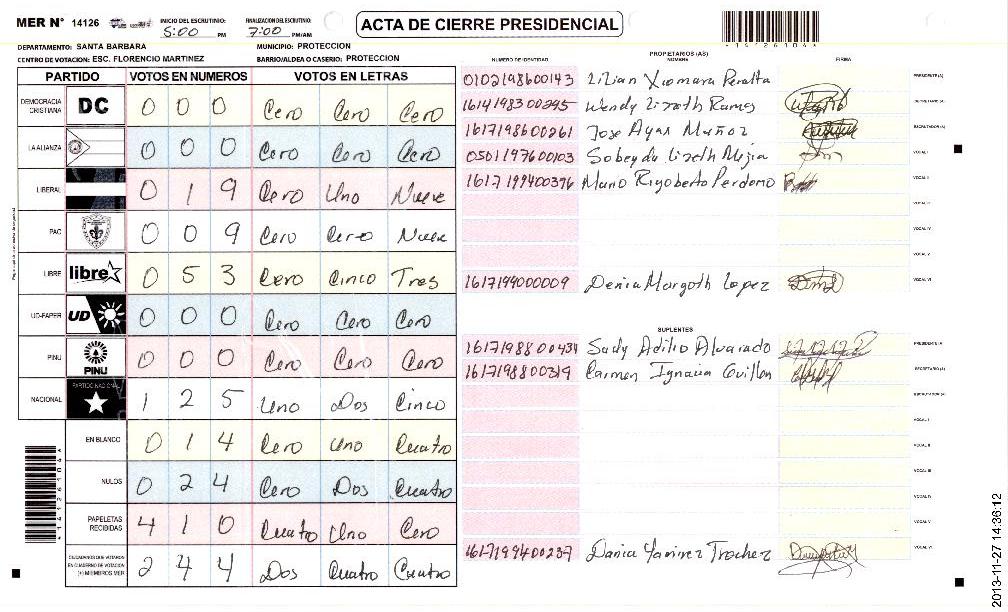 MER N° 14126 INICIO DEL ESCRUTINIO: 5:00 PM FINALIZACION DEL ESCRUTINIO: 7:00 PM/AM ACTA DE CIERRE PRESIDENCIAL
DEPARTAMENTO: SANTA BARBARA MUNICIPIO: PROTECCION
CENTRO DE VOTACION: ESC. FLORENCIO MARTINEZ BARRIO/ALDEA O CASERIO: PROTECCION
PARTIDO VOTOS EN NUMEROS VOTOS EN LETRAS
DEMOCRACIA CRISTIANA DC 0 0 0 Cero Cero Cero
LA ALIANZA 0 0 0 Cero Cero Cero
LIBERAL 0 1 9 Cero Uno Nueve
PAC 0 0 9 Cero Cero Nueve
LIBRE libre 0 5 3 Cero Cinco Tres
UD-FAPER UD 0 0 0 Cero Cero Cero
PINU PINU 0 0 0 Cero Cero Cero
NACIONAL PARTIDO NACIONAL 1 2 5 Uno Dos Cinco
EN BLANCO 0 1 4 Cero Uno Cuatro
NULOS 0 2 4 Cero Dos Cuatro
PAPELETAS RECIBIDAS 4 1 0 Cuatro Uno Cero
CIUDADANOS QUE VOTARON EN CUADERNO DE VOTACION (+) MIEMBROS MER 2 4 4 Dos Cuatro Cuatro
PROPIETARIOS (AS)
NUMERO DE IDENTIDAD NOMBRE FIRMA
0102198600143 Lilian Xiomara Peralta PRESIDENTE (A)
1614198300295 Wendy Lizeth Ramos SECRETARIO (A)
1617198600261 Jose Ayar Muñoz ESCRUTADOR (A)
0501197600103 Sobeyda Lizeth Mejia VOCAL I
1617199400396 Mario Rigoberto Perdomo VOCAL II
VOCAL III
VOCAL IV
VOCAL V
1617194000009 Denia Margoth Lopez VOCAL VI
SUPLENTES
1617198800434 Sudy Adilio Alvarado PRESIDENTE (A)
1617198800319 Carmen Ignacia Guillen SECRETARIO (A)
ESCRUTADOR (A)
VOCAL I
VOCAL II
VOCAL III
VOCAL IV
VOCAL V
1617199400237 Dania Yamirez Trochez VOCAL VI
2013-11-27 14:36:12